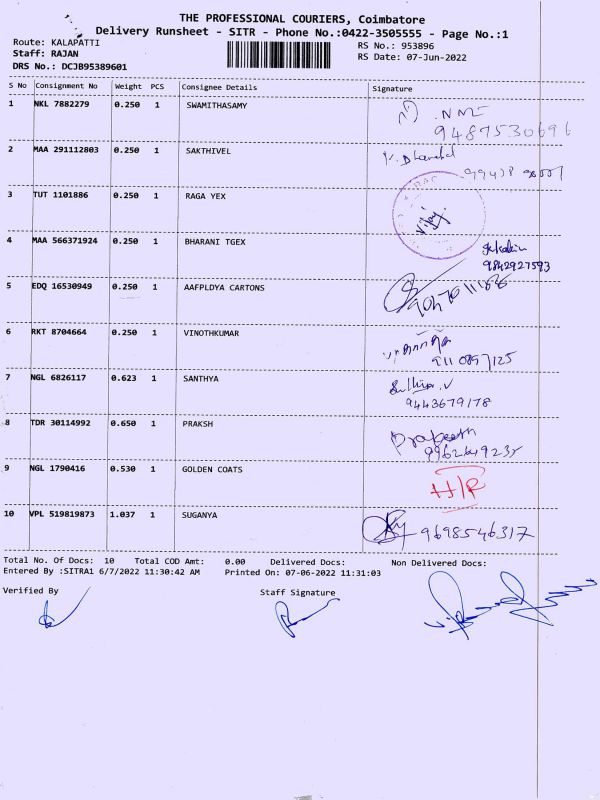 THE PROFESSIONAL COURIERS, Coimbatore
Delivery Runsheet - SITR - Phone No.:0422-3505555 - Page No.:1
Route: KALAPATTI
Staff: RAJAN
DRS No.: DCJB95389601
RS No.: 953896
RS Date: 07-Jun-2022
S No Consignment No Weight PCS Consignee Details Signature
1 NKL 7882279 0.250 1 SWAMITHASAMY
9487530696
2 MAA 291112803 0.250 1 SAKTHIVEL
3 TUT 1101886 0.250 1 RAGA YEX
Vijay
4 MAA 566371924 0.250 1 BHARANI TGEX
9842927593
5 EDQ 16530949 0.250 1 AAFPLOYA CARTONS
6 RKT 8704664 0.250 1 VINOTHKUMAR
7 NGL 6826117 0.623 1 SANTHYA
9443679178
8 TDR 30114992 0.650 1 PRAKSH
9 NGL 1790416 0.530 1 GOLDEN COATS
10 VPL 519819873 1.037 1 SUGANYA 9698546317
Total No. Of Docs: 10 Total COD Amt: 0.00 Delivered Docs: Non Delivered Docs:
Entered By :SITRA1 6/7/2022 11:30:42 AM Printed On: 07-06-2022 11:31:03
Verified By Staff Signature